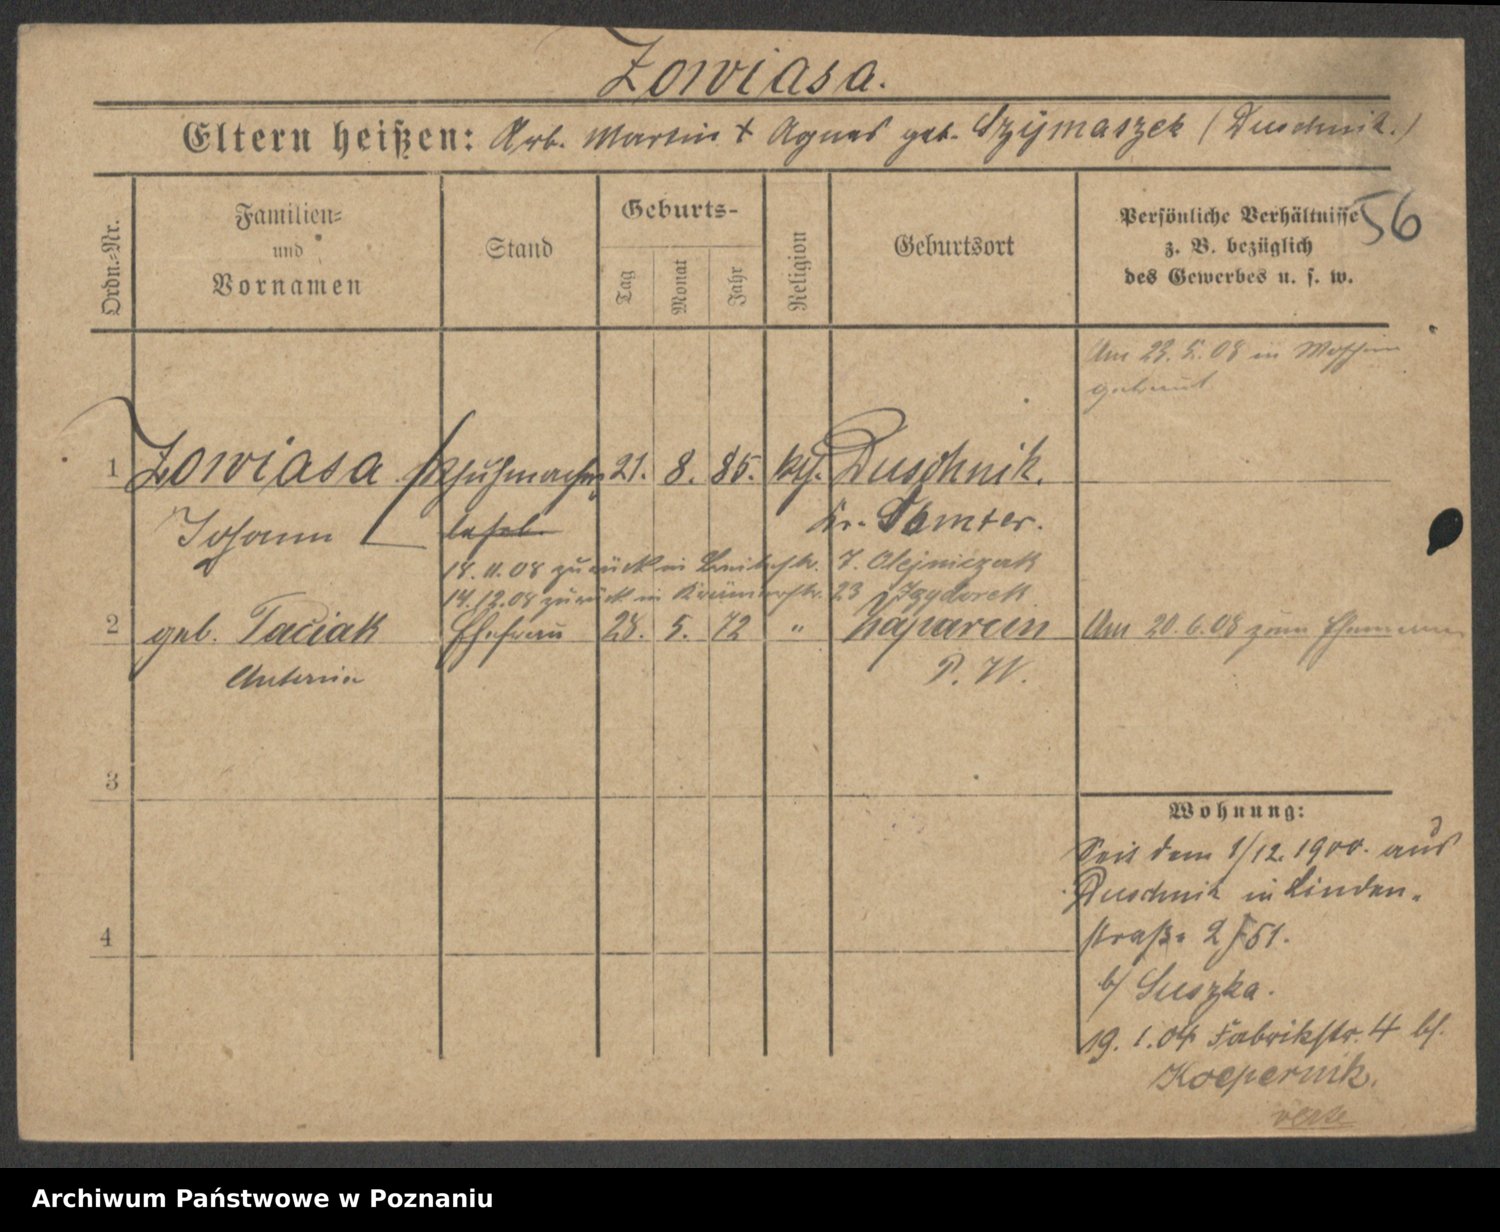 Zowiasa.
Eltern heißen: Arb. Martin + Agnes geb. Szymaszek (Duschnik.)
56
Ordn.-Nr.
Familien-
und
Vornamen
Stand
Geburts-
Tag
Monat
Jahr
Religion
Geburtsort
Persönliche Verhältnisse
z. B. bezüglich
des Gewerbes u. s. w.
Am 23.5.08 in
getraut
1 Zowiasa Schuhmacher 21. 8. 85. kth. Duschnik.
Johann Kr. Samter.
18.11.08 zurück in 7. Olejniczak
14.12.08 zurück in Krämerstr. 23
2 geb. Taciak Ehefrau 28. 5. 72 "
Antonia P. W.
Am 20.6.08 zum Ehemann
3
4
Wohnung:
Seit dem 1/12. 1900. aus
Duschnik in Linden-
straße 2/51.
b/ Suszka.
19.1.04 Fabrikstr. 4 bf.
Koepernik.
Archiwum Państwowe w Poznaniu